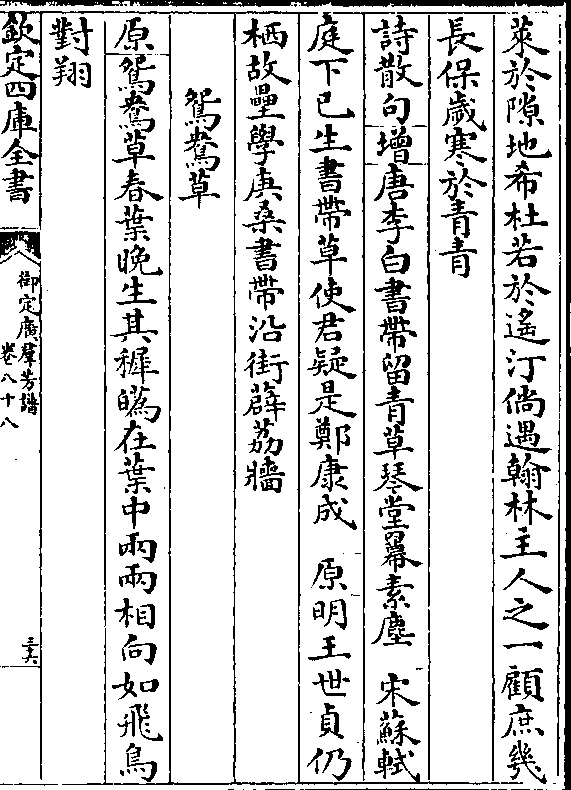 萊於隙地希杜若於遙汀倘遇翰林主人之一顧庶幾
長保歲寒於青青
詩散句增唐李白書帶留青草琴堂冪素塵　宋蘇軾
庭下已生書帶草使君疑是鄭康成　原明王世貞仍
栖故壘學庚桑書帶沿街薜荔牆
鴛鴦草
原鴛鴦草春葉晚生其穉蘤在葉中兩兩相向如飛鳥
對翔
欽定四庫全書
御定廣羣芳譜
卷八十八
三六